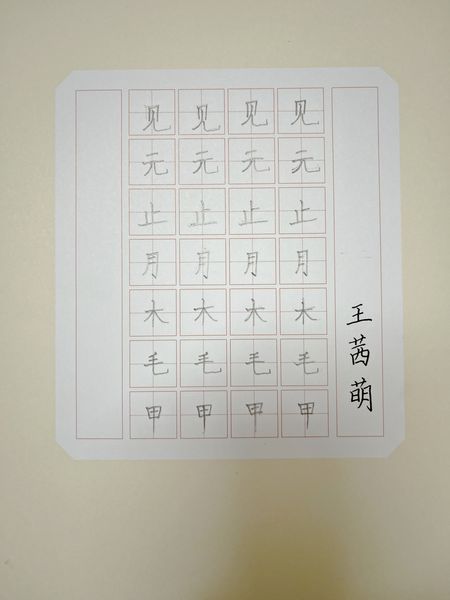 见见见见
元元元元
止止止止
月月月月
木木木木
毛毛毛毛
甲甲甲甲
王茜萌